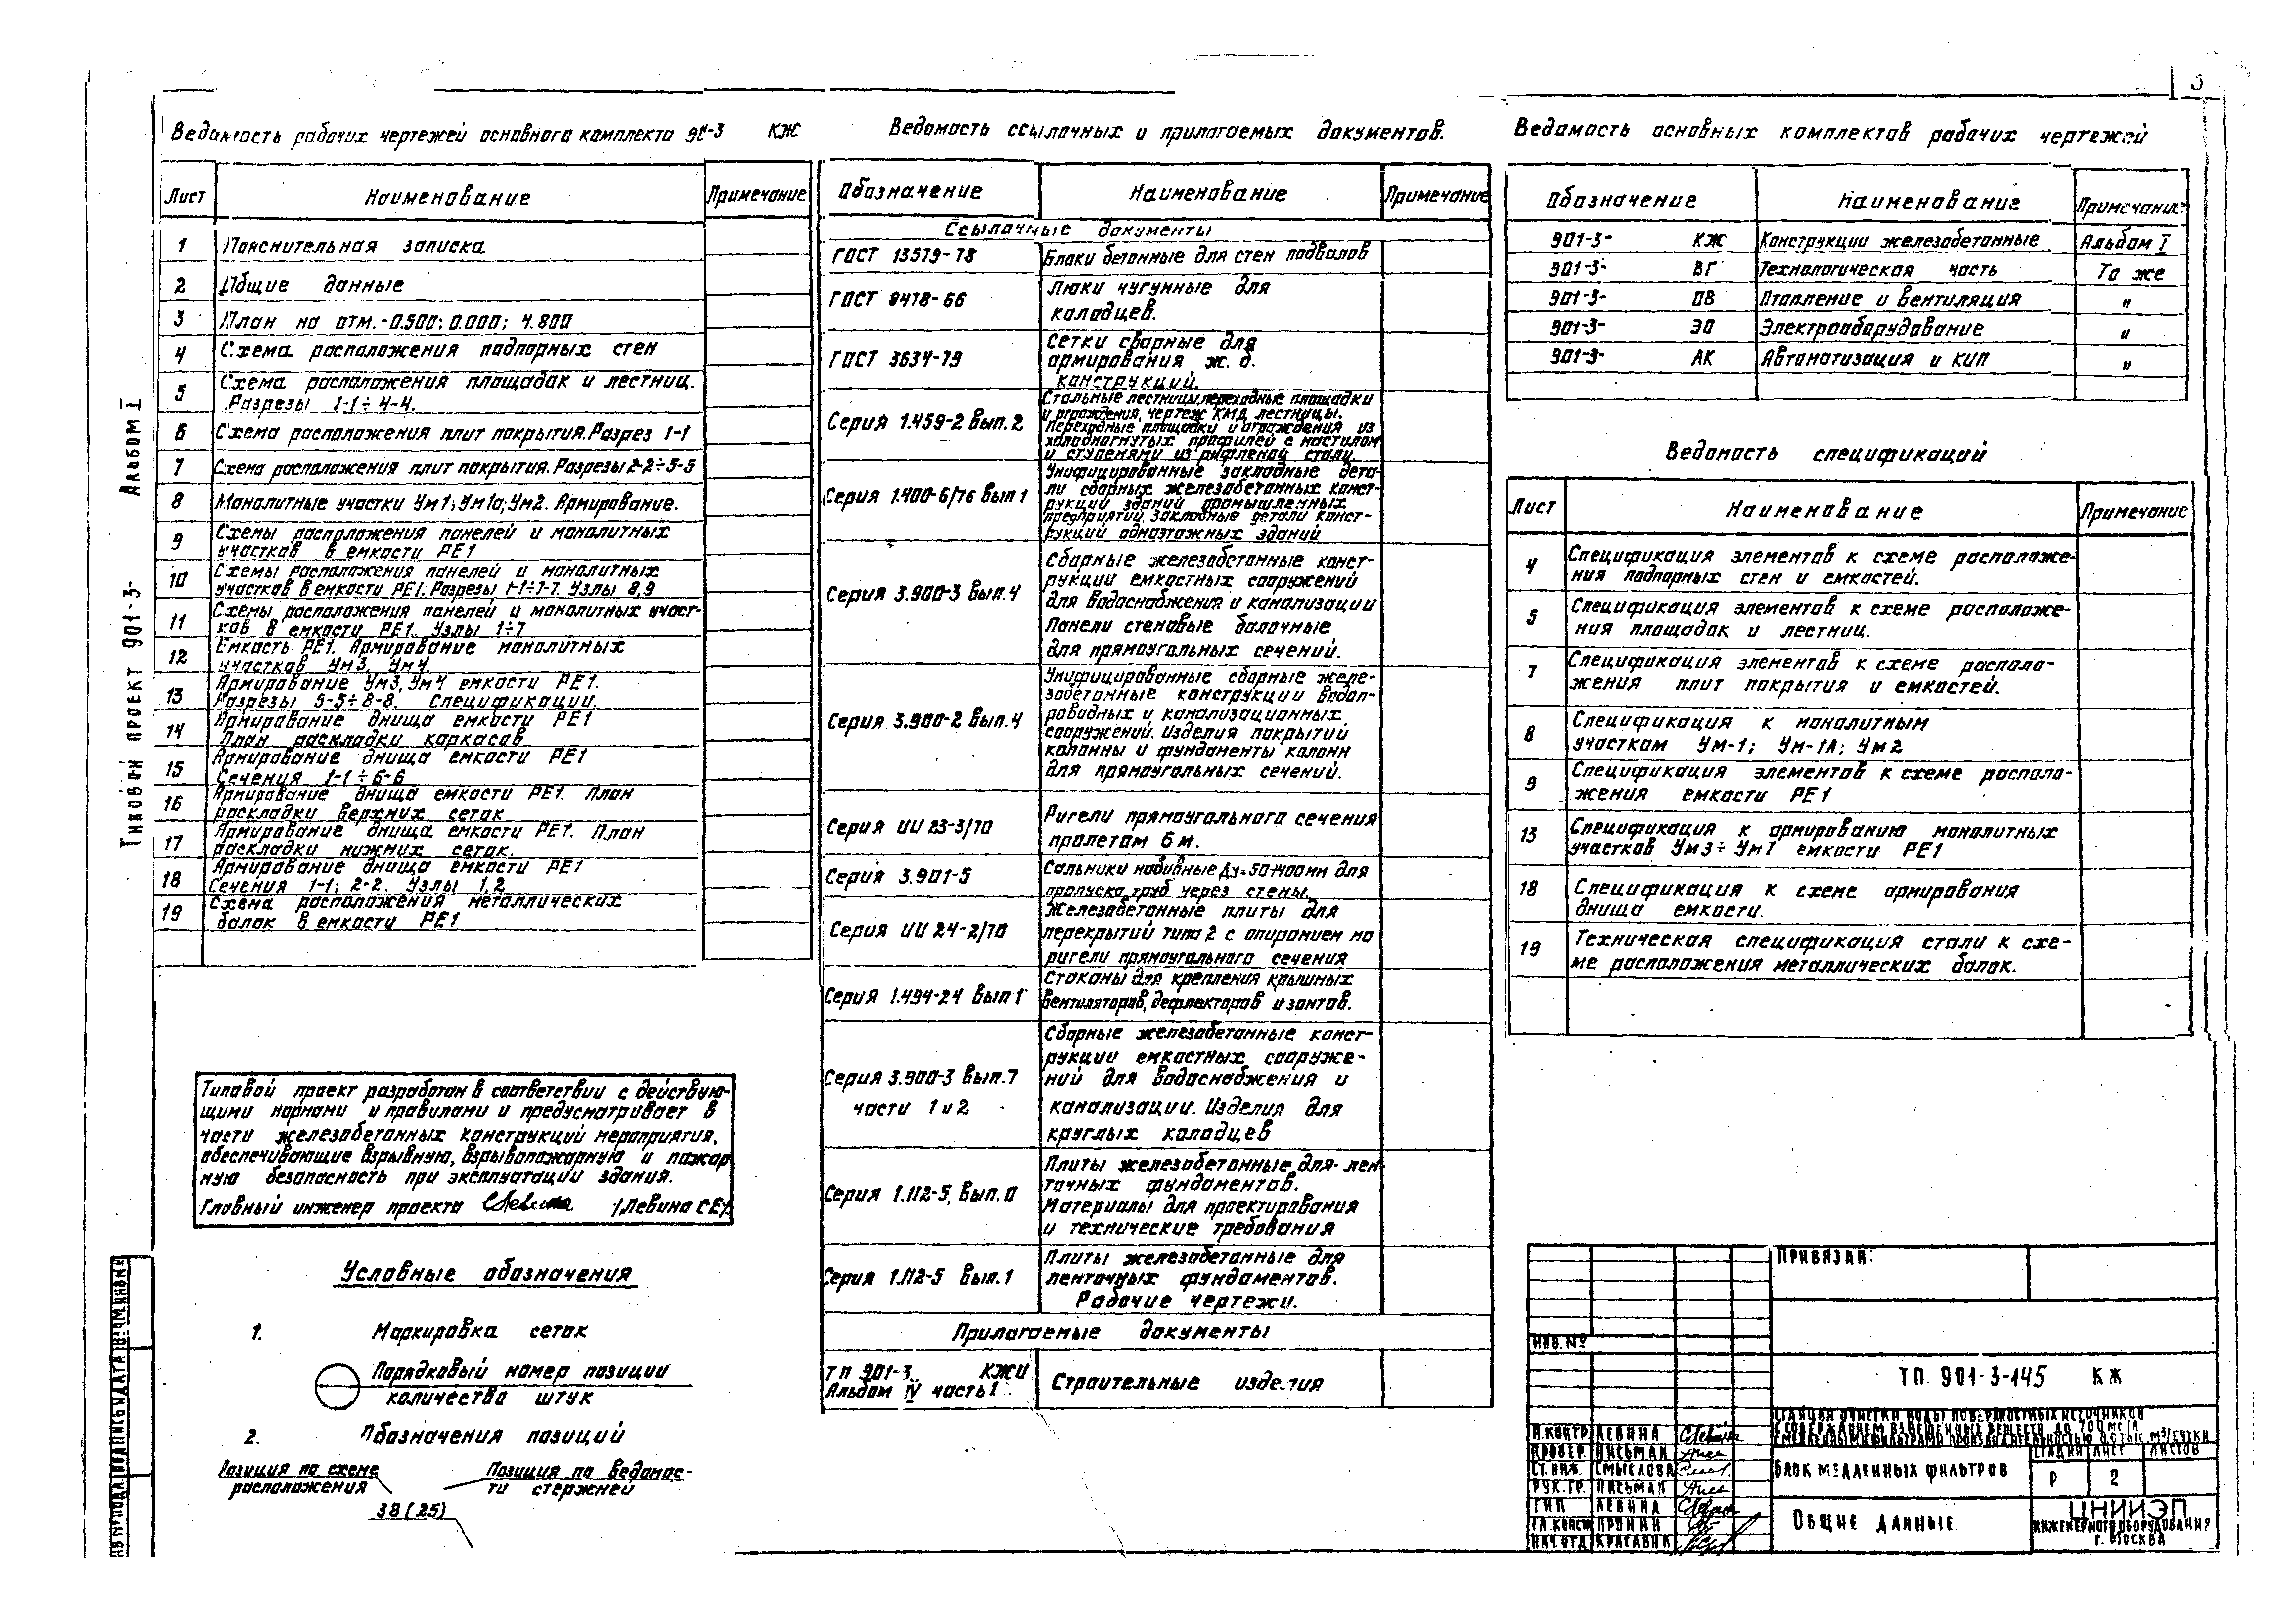 3
Ведомость рабочих чертежей основного комплекта 901-3 КЖ
Лист Наименование Примечание
1 Пояснительная записка
2 Общие данные
3 План на отм.-0.500; 0.000; 4.800
4 Схема расположения подпорных стен
5 Схема расположения площадок и лестниц.
Разрезы 1-1÷4-4.
6 Схема расположения плит покрытия. Разрез 1-1
7 Схема расположения плит покрытия. Разрезы 2-2÷5-5
8 Монолитные участки Ум1; Ум1а; Ум2. Армирование.
9 Схемы расположения панелей и монолитных
участков в емкости РЕ1
10 Схемы расположения панелей и монолитных
участков в емкости РЕ1. Разрезы 1-1÷7-7. Узлы 8,9
11 Схемы расположения панелей и монолитных участ-
ков в емкости РЕ1. Узлы 1÷7
12 Емкость РЕ1. Армирование монолитных
участков Ум3, Ум4
13 Армирование Ум3, Ум4 емкости РЕ1.
Разрезы 5-5÷8-8. Спецификации.
14 Армирование днища емкости РЕ1
План раскладки каркасов
15 Армирование днища емкости РЕ1
Сечения 1-1÷6-6
16 Армирование днища емкости РЕ1. План
раскладки верхних сеток
17 Армирование днища емкости РЕ1. План
раскладки нижних сеток.
18 Армирование днища емкости РЕ1
Сечения 1-1; 2-2. Узлы 1,2
19 Схема расположения металлических
балок в емкости РЕ1
Типовой проект разработан в соответствии с действую-
щими нормами и правилами и предусматривает в
части железобетонных конструкций мероприятия,
обеспечивающие взрывную, взрывопожарную и пожар
ную безопасность при эксплуатации здания.
Главный инженер проекта /Левина СЕ/
Условные обозначения
1. Маркировка сеток
Порядковый номер позиции
количество штук
2. Обозначения позиций
Позиция по схеме
расположения
Позиция по ведомос-
ти стержней
38 (25)
Ведомость ссылочных и прилагаемых документов.
Обозначение Наименование Примечание
Ссылочные документы
ГОСТ 13579-78 Блоки бетонные для стен подвалов
ГОСТ 8478-66 Люки чугунные для
колодцев.
ГОСТ 3634-79 Сетки сварные для
армирования ж. б.
конструкций.
Серия 1.459-2 Вып. 2 Стальные лестницы, переходные площадки
и ограждения, чертеж КМД лестницы.
Переходные площадки и ограждения из
холодногнутых профилей с настилом
и ступенями из рифленой стали
Серия 1.400-6/76 Вып 1 Унифицированные закладные дета-
ли сборных железобетонных конст-
рукций зданий промышленных
предприятий. Закладные детали конст-
рукций одноэтажных зданий
Серия 3.900-3 Вып.4 Сборные железобетонные конст-
рукции емкостных сооружений
для водоснабжения и канализации
Панели стеновые балочные
для прямоугольных сечений.
Серия 3.900-2 Вып.4 Унифицированные сборные желе-
зобетонные конструкции водоп-
роводных и канализационных
сооружений. Изделия покрытий
колонны и фундаменты колонн
для прямоугольных сечений.
Серия ИИ 23-3/70 Ригели прямоугольного сечения
пролетом 6 м.
Серия 3.901-5 Сальники набивные Ду=50÷1400мм для
пропуска труб через стены.
Серия ИИ 24-2/70 Железобетонные плиты для
перекрытий типа 2 с опиранием на
ригели прямоугольного сечения
Серия 1.494-24 Вып 1 Стаканы для крепления крышных
вентиляторов, дефлекторов и зонтов.
Серия 3.900-3 Вып.7
части 1 и 2
Сборные железобетонные конст-
рукции емкостных сооруже-
ний для водоснабжения и
канализации. Изделия для
круглых колодцев
Серия 1.112-5, Вып. 0 Плиты железобетонные для лен
точных фундаментов.
Материалы для проектирования
и технические требования
Серия 1.112-5 Вып. 1 Плиты железобетонные для
ленточных фундаментов.
Рабочие чертежи.
Прилагаемые документы
ТП 901-3. КЖИ
Альбом IV часть 1
Строительные изделия
Ведомость основных комплектов рабочих чертежей
Обозначение Наименование Примечание
901-3- КЖ Конструкции железобетонные Альбом I
901-3- ВГ Технологическая часть То же
901-3- ОВ Отопление и вентиляция "
901-3- ЭО Электрооборудование "
901-3- АК Автоматизация и КИП "
Ведомость спецификаций
Лист Наименование Примечание
4 Спецификация элементов к схеме расположе-
ния подпорных стен и емкостей.
5 Спецификация элементов к схеме расположе-
ния площадок и лестниц.
7 Спецификация элементов к схеме располо-
жения плит покрытия и емкостей.
8 Спецификация к монолитным
участкам Ум-1; Ум-1А; Ум2
9 Спецификация элементов к схеме располо-
жения емкости РЕ1
13 Спецификация к армированию монолитных
участков Ум3÷Ум7 емкости РЕ1
18 Спецификация к схеме армирования
днища емкости.
19 Техническая спецификация стали к схе-
ме расположения металлических балок.
Привязан:
Инв.№
ТП 901-3-145 КЖ
Станция очистки воды поверхностных источников
с содержанием взвешенных веществ до 700 мг/л
с медленными фильтрами производительностью 0.5 тыс. м3/сутки
Н.контр Левина
Провер. Письман
Ст.инж. Смыслова
Рук.гр. Письман
ГИП Левина
Гл.конст Пронин
Нач.отд Красавин
Блок медленных фильтров
Стадия Лист Листов
Р 2
Общие данные
ЦНИИЭП
инженерного оборудования
г. Москва
Типовой проект 901-3- Альбом I
Инв №подл Подпись и дата Взам.инв№